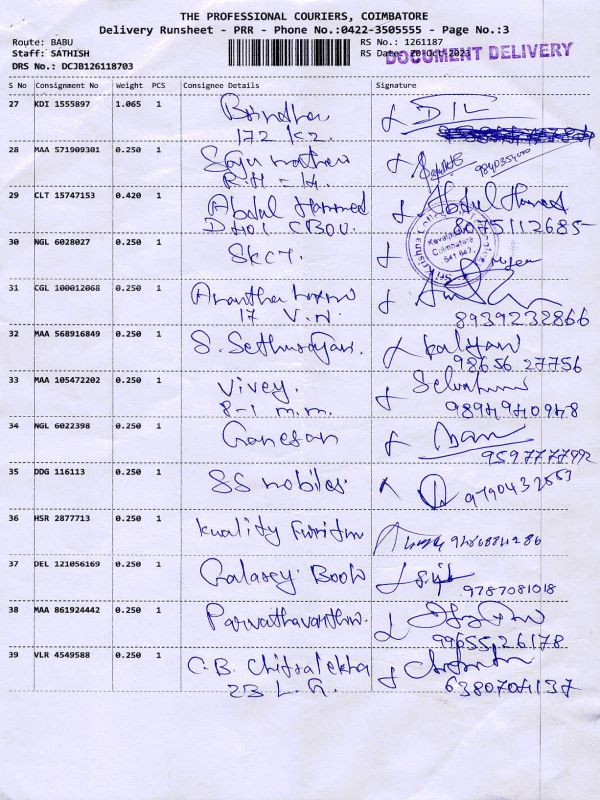 THE PROFESSIONAL COURIERS, COIMBATORE
Delivery Runsheet - PRR - Phone No.:0422-3505555 - Page No.:3
Route: BABU RS No.: 1261187
Staff: SATHISH RS Date: 20-Oct-2023 DOCUMENT DELIVERY
DRS No.: DCJB126118703
S No Consignment No Weight PCS Consignee Details Signature
27 KDI 1555897 1.065 1 Brindha
172 K2
28 MAA 571909301 0.250 1 Saju mathew 9840354000
R.H = H.
29 CLT 15747153 0.420 1 Abdul Hammed Abdul Hameed
DHOI CBOU. 8075112685
30 NGL 6028027 0.250 1 SKCT.
Coimbatore
641 042
31 CGL 100012068 0.250 1
17 V.N. 8939232866
32 MAA 568916849 0.250 1 S. Sethurayan. Kalyan
98656 27756
33 MAA 105472202 0.250 1 Vivey.
8-1 m.m. 9894940948
34 NGL 6022398 0.250 1 Ganesan
9597777992
35 DDG 116113 0.250 1 SS mobiles.
36 HSR 2877713 0.250 1 Kuality
37 DEL 121056169 0.250 1 Galaxey Book
9787081018
38 MAA 861924442 0.250 1
9965526178
39 VLR 4549588 0.250 1 C.B. Chitralekha
2B L.G. 6380704137